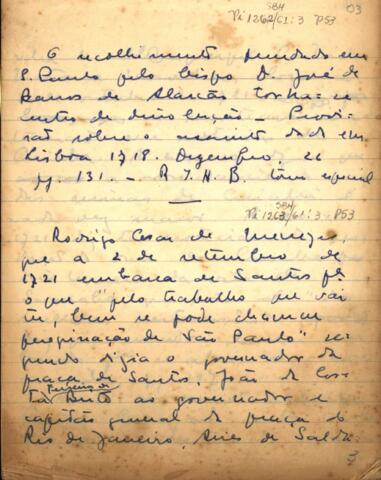 SBH
Pi 1262/61:3 P53
03
O recolhimento fundado em
S. Paulo pelo bispo D. José de
Barros de Alarcão torna-se
centro de devoção - Provi
são sobre o assunto dada em
Lisboa 1718. Dezembro, 22
pg. 131. - R I H B. tomo especial
SBH
Pi 1263/61:3 P53
Rodrigo Cesar de Menezes,
que a 2 de setembro de
1721 embarca de Santos p.a
o que "pelo trabalho que vai
ter, bem se pode chamar
peregrinação de São Paulo" se
gundo dizia o governador da
praça de Santos, João da Cos
ta Brito ao governador e
capitão general da praça do
Rio de Janeiro, Aires de Salda
3